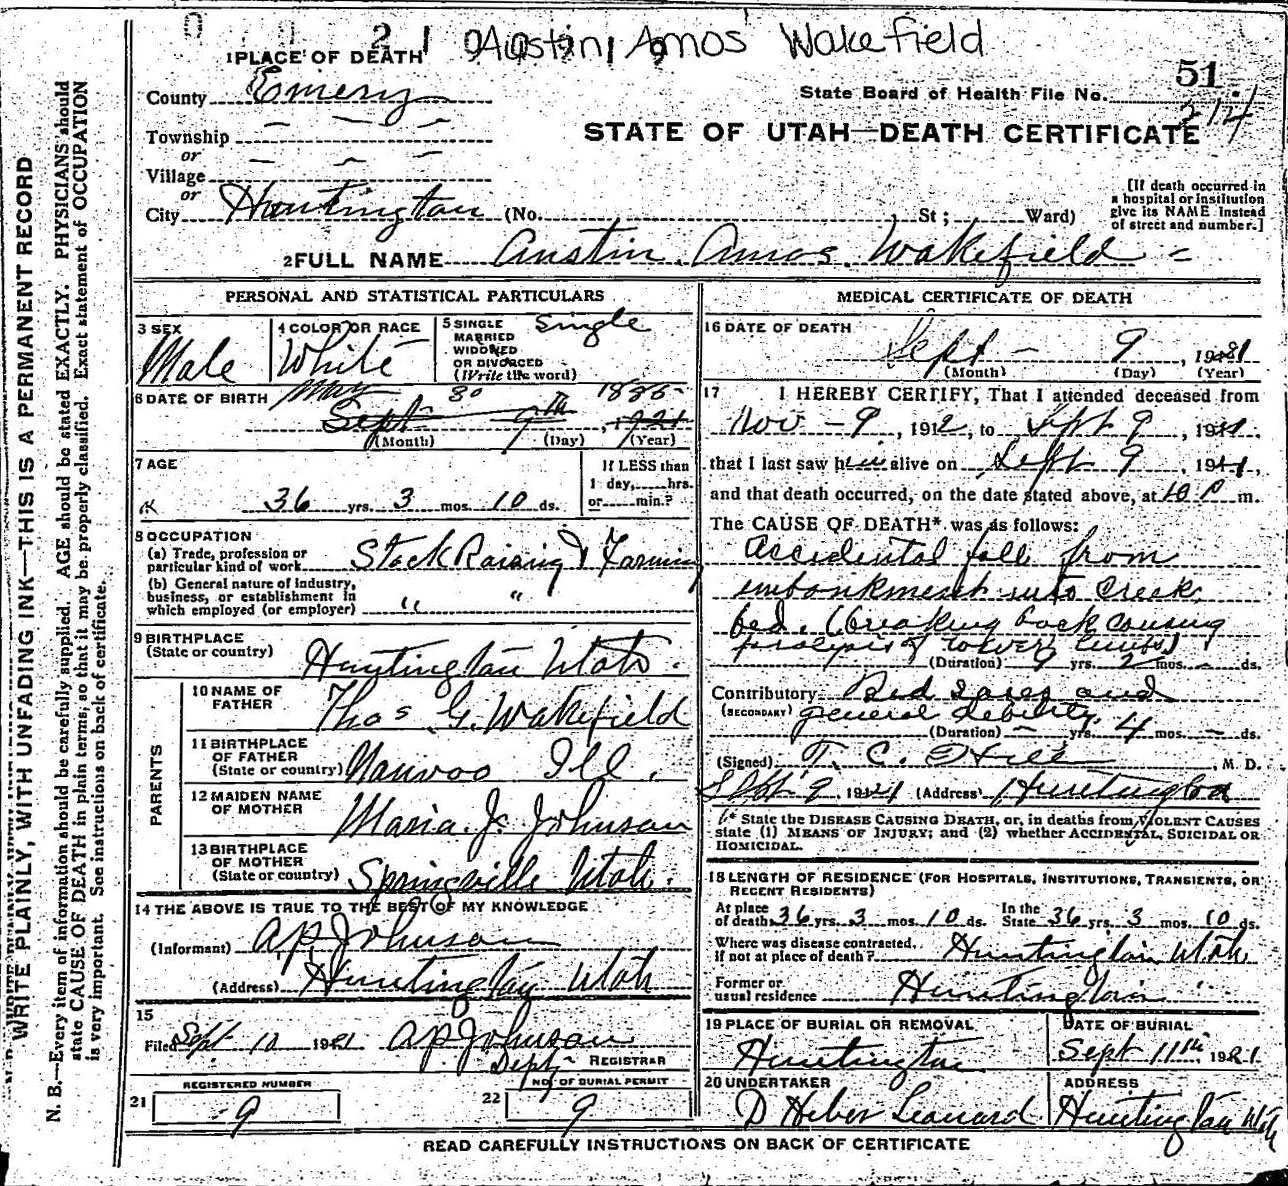 2 1 Austin, Amos Wakefield
1 PLACE OF DEATH
51
County Emery
State Board of Health File No. 214
Township — — —
STATE OF UTAH—DEATH CERTIFICATE
or
Village — — —
or
City Huntington (No. , St ; Ward)
[If death occurred in
a hospital or institution
give its NAME instead
of street and number.]
2 FULL NAME Austin Amos Wakefield
PERSONAL AND STATISTICAL PARTICULARS
3 SEX
Male
4 COLOR OR RACE
White
5 SINGLE
MARRIED
WIDOWED
OR DIVORCED
(Write the word)
Single
6 DATE OF BIRTH
May 30 1885
Sept 9th , 1921
(Month) (Day) (Year)
7 AGE
36 yrs. 3 mos. 10 ds.
If LESS than
1 day, hrs.
or min.?
8 OCCUPATION
(a) Trade, profession or
particular kind of work Stock Raising & Farming
(b) General nature of industry,
business, or establishment in
which employed (or employer) " "
9 BIRTHPLACE
(State or country) Huntington Utah.
PARENTS
10 NAME OF
FATHER Thos G. Wakefield
11 BIRTHPLACE
OF FATHER
(State or country) Nauvoo Ill.
12 MAIDEN NAME
OF MOTHER Maria J. Johnson
13 BIRTHPLACE
OF MOTHER
(State or country) Springville Utah.
14 THE ABOVE IS TRUE TO THE BEST OF MY KNOWLEDGE
(Informant) A P Johnson
(Address) Huntington Utah
15
Filed Sept 10 1921 A P Johnson
Depty REGISTRAR
REGISTERED NUMBER
21 9
NO. OF BURIAL PERMIT
22 9
MEDICAL CERTIFICATE OF DEATH
16 DATE OF DEATH
Sept — 9 , 1921
(Month) (Day) (Year)
17 I HEREBY CERTIFY, That I attended deceased from
Nov - 9 , 1912, to Sept 9 , 1921,
that I last saw him alive on Sept 9 , 1921,
and that death occurred, on the date stated above, at 10 P m.
The CAUSE OF DEATH* was as follows:
Accidental fall from
embankment into Creek
bed. (breaking back causing
paralysis of lower limbs)
(Duration) 9 yrs. 2 mos. - ds.
Contributory Bed sores and
(SECONDARY) general debility.
(Duration) — yrs. 4 mos. — ds.
(Signed) T. C. Hill , M. D.
Sept 9 1921 (Address) Huntington
* State the DISEASE CAUSING DEATH, or, in deaths from VIOLENT CAUSES
state (1) MEANS OF INJURY; and (2) whether ACCIDENTAL, SUICIDAL OR
HOMICIDAL.
18 LENGTH OF RESIDENCE (FOR HOSPITALS, INSTITUTIONS, TRANSIENTS, OR
RECENT RESIDENTS)
At place
of death 36 yrs. 3 mos. 10 ds.
In the
State 36 yrs. 3 mos. 10 ds.
Where was disease contracted,
if not at place of death? Huntington Utah
Former or
usual residence Huntington "
19 PLACE OF BURIAL OR REMOVAL
Huntington
DATE OF BURIAL
Sept 11th 1921
20 UNDERTAKER
D Heber Leonard
ADDRESS
Huntington Utah
READ CAREFULLY INSTRUCTIONS ON BACK OF CERTIFICATE
WRITE PLAINLY, WITH UNFADING INK—THIS IS A PERMANENT RECORD
N. B.—Every item of information should be carefully supplied. AGE should be stated EXACTLY. PHYSICIANS should
state CAUSE OF DEATH in plain terms, so that it may be properly classified. Exact statement of OCCUPATION
is very important. See instructions on back of certificate.